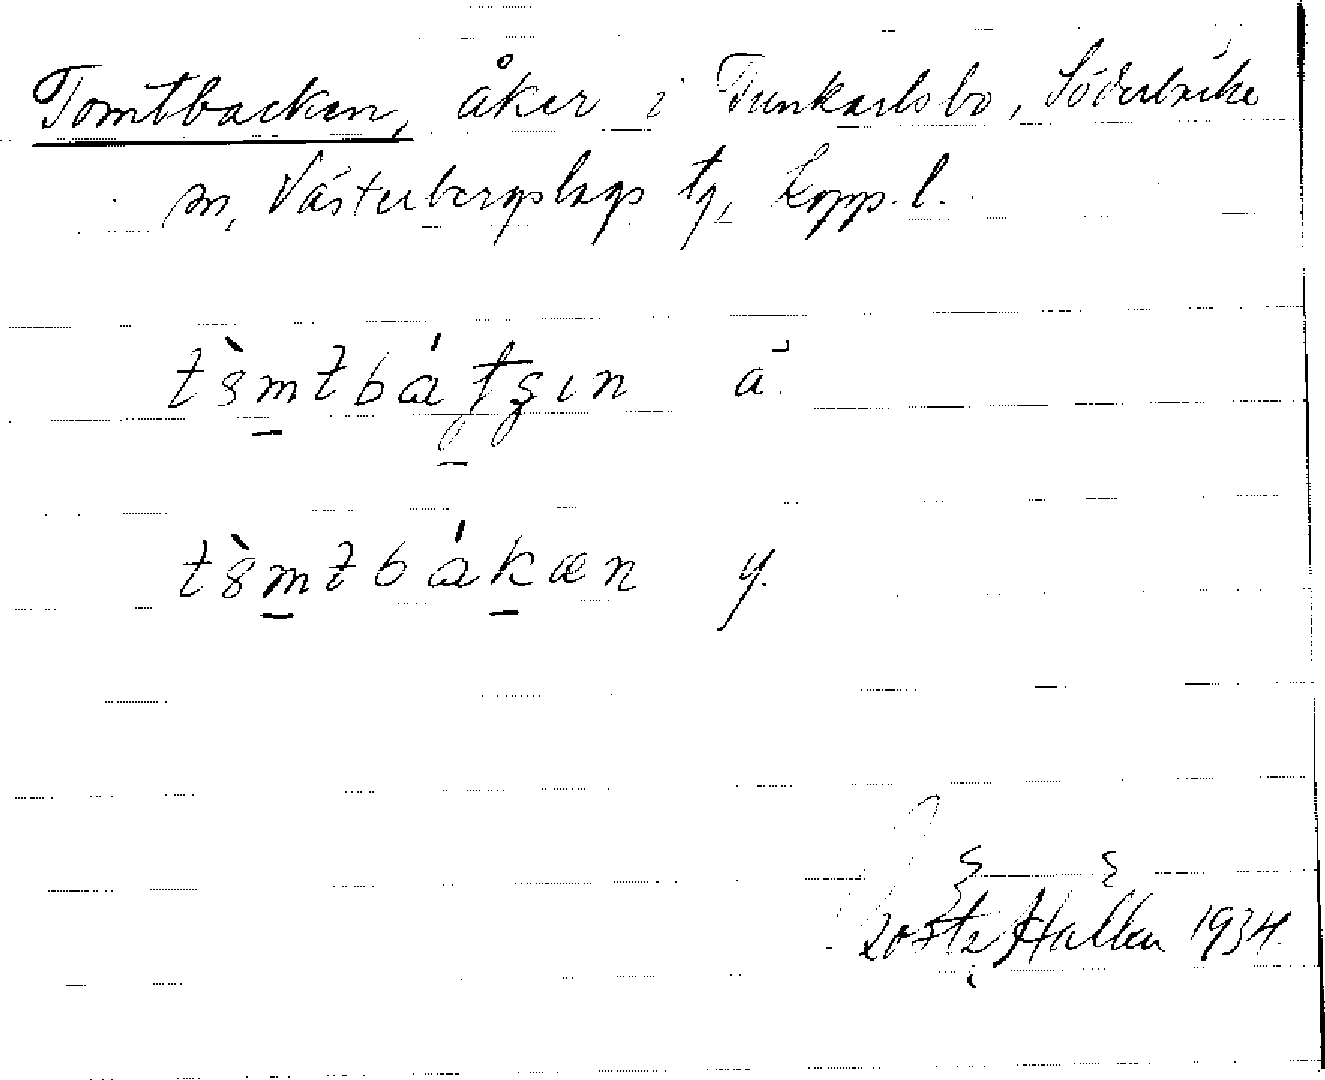 Tomtbacken, åker i Tunkarlsbo, Söderbärke
sn, Västerbergslags tg, Kopp. l.
tò̀mtbátʂɪn ä.
tò̀mtbákæn y.
Gösta Hallén 1934.